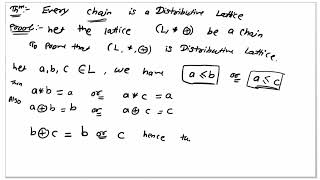 Thm:- Every chain is a Distributive Lattice
Proof:- Let the lattice (L, *, ⊕) be a chain
To prove that (L, *, ⊕) is Distributive Lattice.
Let a, b, c ∈ L, we have a ≤ b or a ≤ c
then a * b = a or a * c = a
Also a ⊕ b = b or a ⊕ c = c
b ⊕ c = b or c hence th